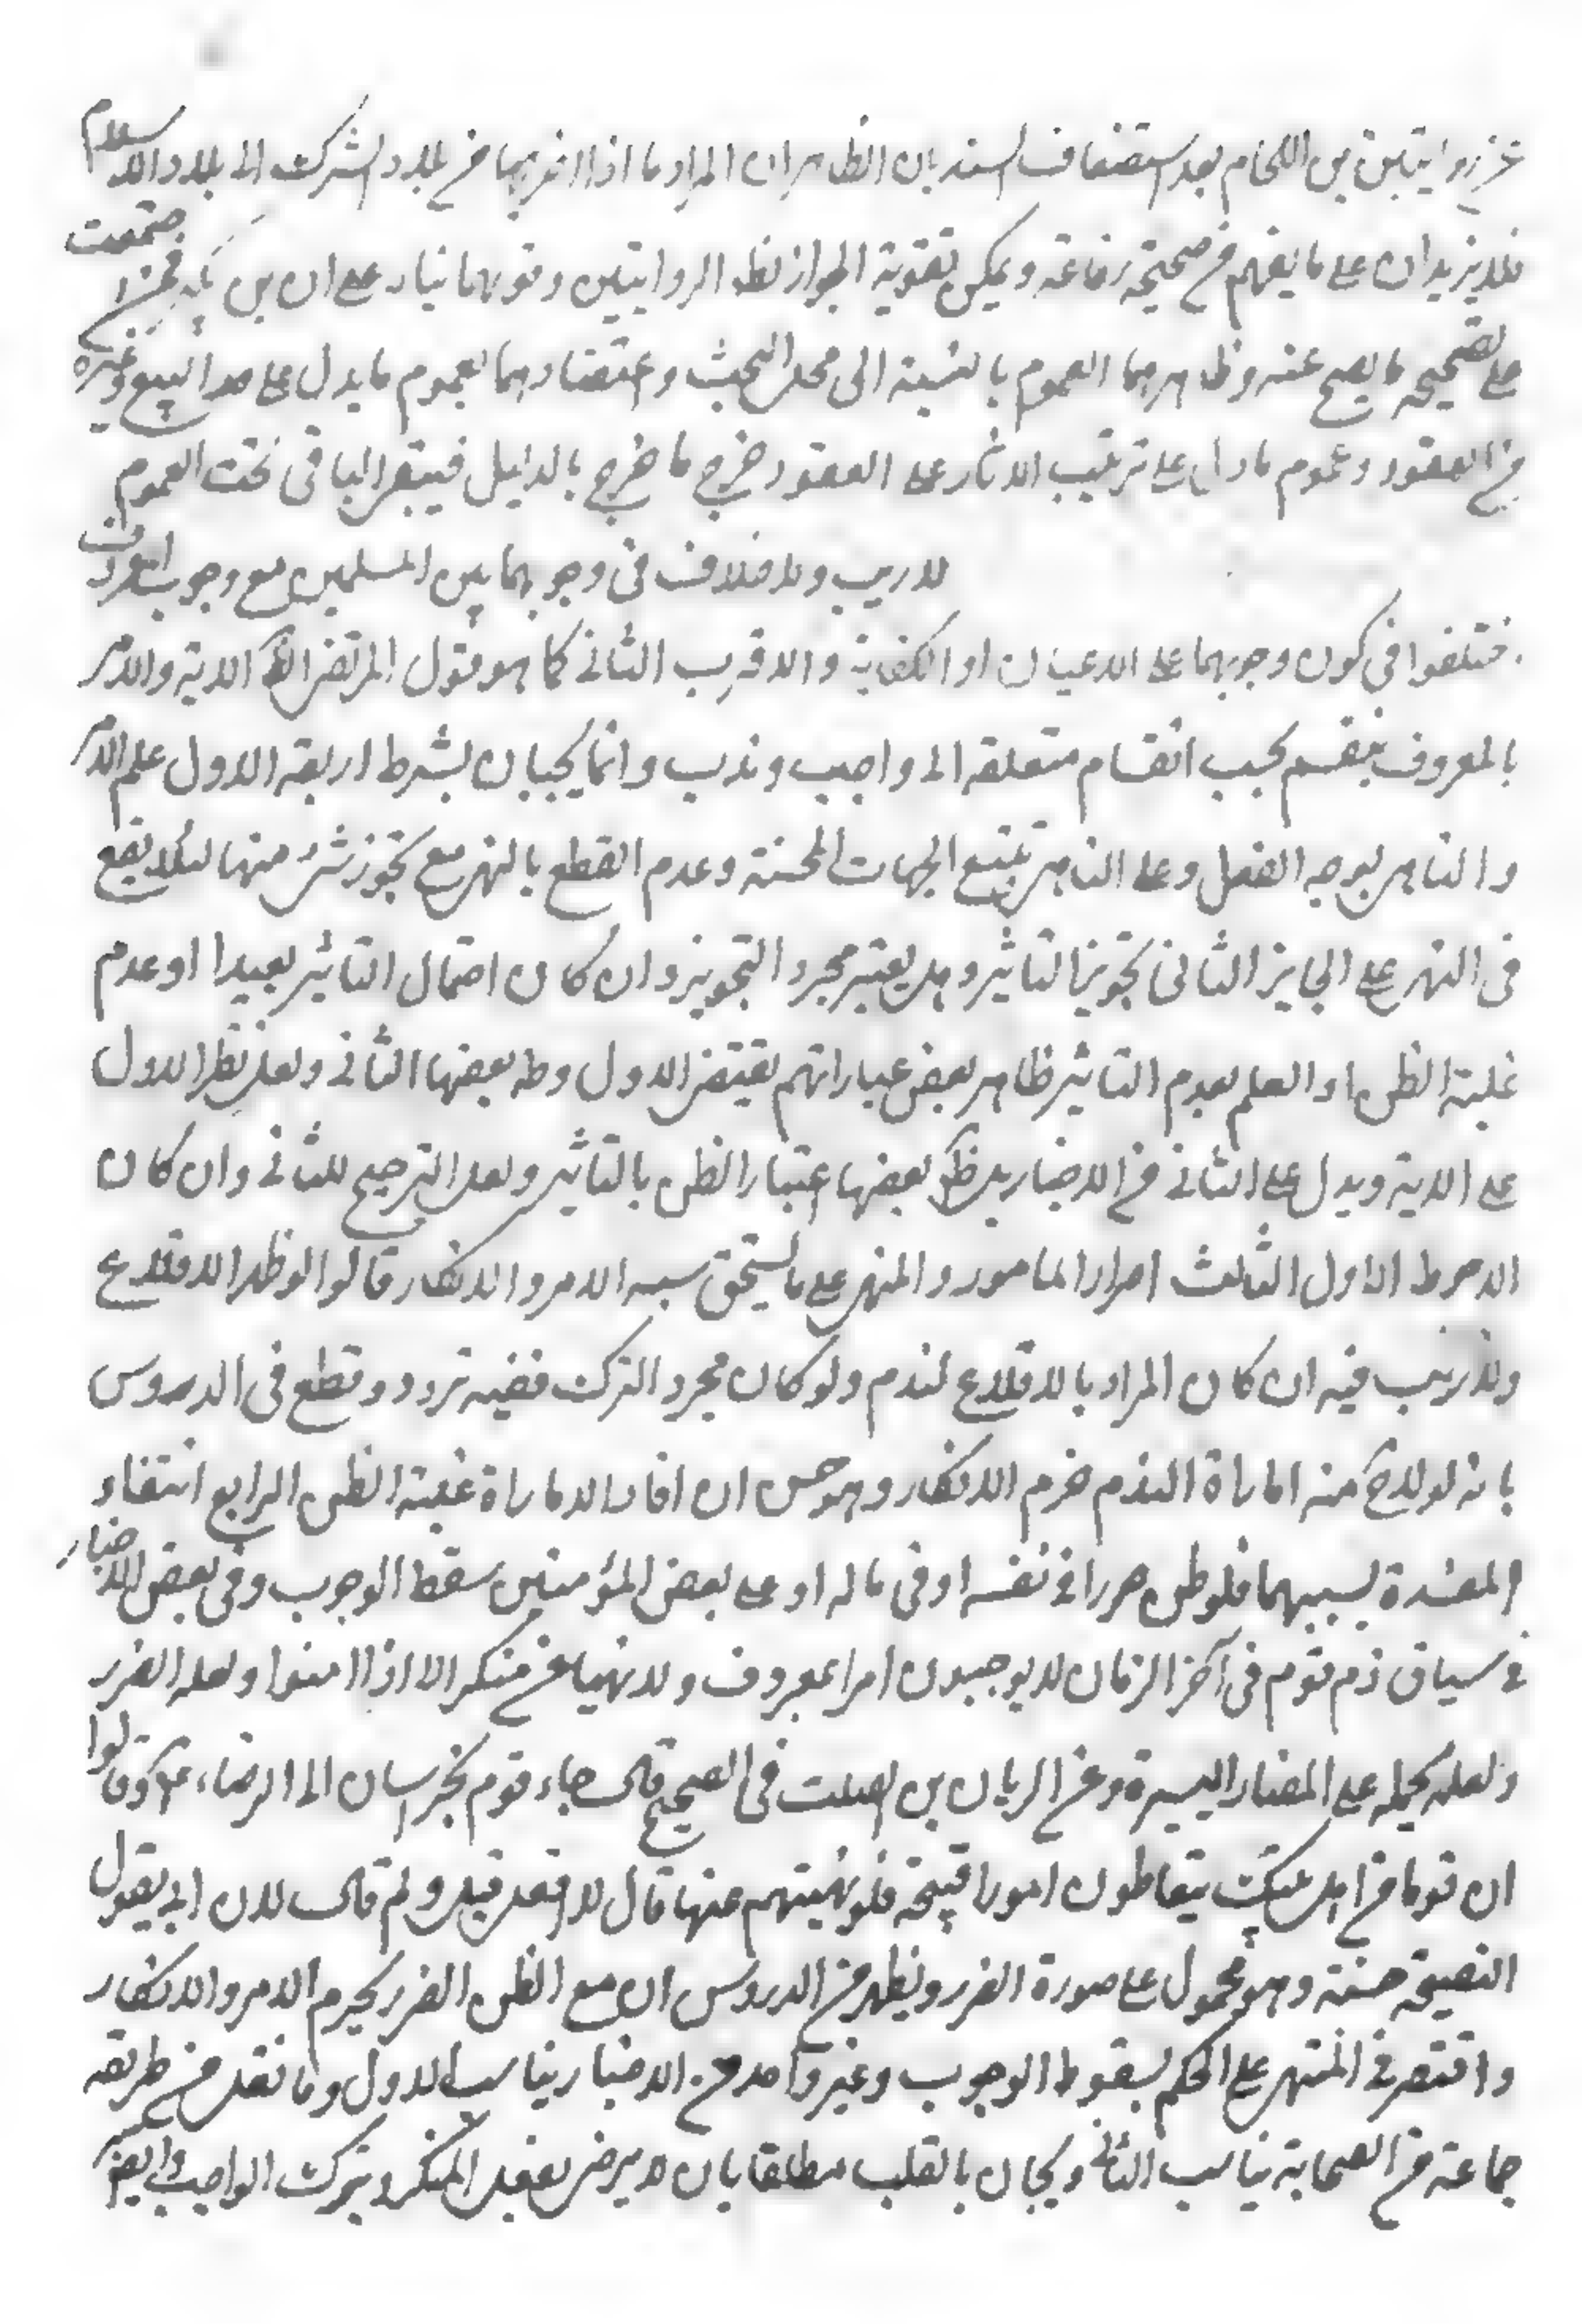 عن روايتين بن اللحام بعد استضعاف السند بان الظاهر ان المراد ما اذا اخر بهما من بلاد الشرك الى بلاد الاسلام
فلا يزيدان على ما يفهم من صحيحة رفاعة ويمكن تقوية الجواز نظرا الروايتين وقوتهما بناء على ان بن ممن اجتمعت
على تصحيح ما يصح عنه وظاهرهما العموم بالنسبة الى محل البحث واعتضادهما بعموم ما يدل على هذا البيع وغيره
من العقود وعموم ما دل على ترتيب الاثار على العقود خرج ما خرج بالدليل فيبقى الباقى تحت العموم
لا ريب ولا خلاف فى وجوبهما بين المسلمين مع وجوب المعروف
اختلفوا فى كون وجوبهما على الاعيان او الكفاية والاقرب الثانى كما هو قول المرتضى الاية والامر
بالمعروف ينقسم بحسب انقسام متعلقه الى واجب وندب وانما يجبان بشروط اربعة الاول علم الامر
والناهى بوجه الفعل وعلى الناهى تتبع الجهات المحسنة وعدم القطع بالنهى مع تجوز شئ منها لئلا يقع
فى النهى على الجايز الثانى تجويز التاثير وهل يعتبر مجرد التجويز وان كان احتمال التاثير بعيدا او عدم
غلبة الظن او العلم بعدم التاثير ظاهر بعض عباراتهم يقتضى الاول وظ بعضها الثانى ولعل نظر الاول
على الاية ويدل على الثانى من الاخبار بل ظ بعضها اعتبار الظن بالتاثير ولعل الترجيح للثانى وان كان
الاحوط الاول الثالث اصرار المامور والمنهى على ما يستحق بسببه الامر والانكار قالوا لو ظهر الاقلاع
ولا ريب فيه ان كان المراد بالاقلاع لندم ولو كان مجرد الترك ففيه تردد وقطع فى الدروس
بانه لو لاح منه امارة الندم حرم الانكار وهو حسن ان افاد الامارة غلبة الظن الرابع انتفاء
المفسدة بسببهما فلو ظن ضررا فى نفسه او فى ماله او على بعض المؤمنين سقط الوجوب وفى بعض الاخبار
فى سياق ذم قوم فى آخر الزمان لا يوجبون امرا بمعروف ولا نهيا عن منكر الا اذا امنوا الضرر
ولعله يحمله على المضار اليسيرة وعن الريان بن الصلت فى الصحيح قال جاء قوم بخراسان الى الرضا ع وقالوا
ان قوما من اهل بيتك يتعاطون امورا قبيحة فلو نهيتهم عنها قال لا افعل قيل ولم قال لان ابى يقول
النصيحة خشنة وهو محمول على صورة الضرر ويظهر من الدروس ان مع الظن الضرر يحرم الامر والانكار
واقتصر فى المنتهى على الحكم بسقوط الوجوب وغير واحد من الاخبار يناسب الاول وما نقل من طريقه
جماعة من الصحابة يناسب الثانى ويجبان بالقلب مطلقا بان لا يرضى بفعل المنكر وبترك الواجب